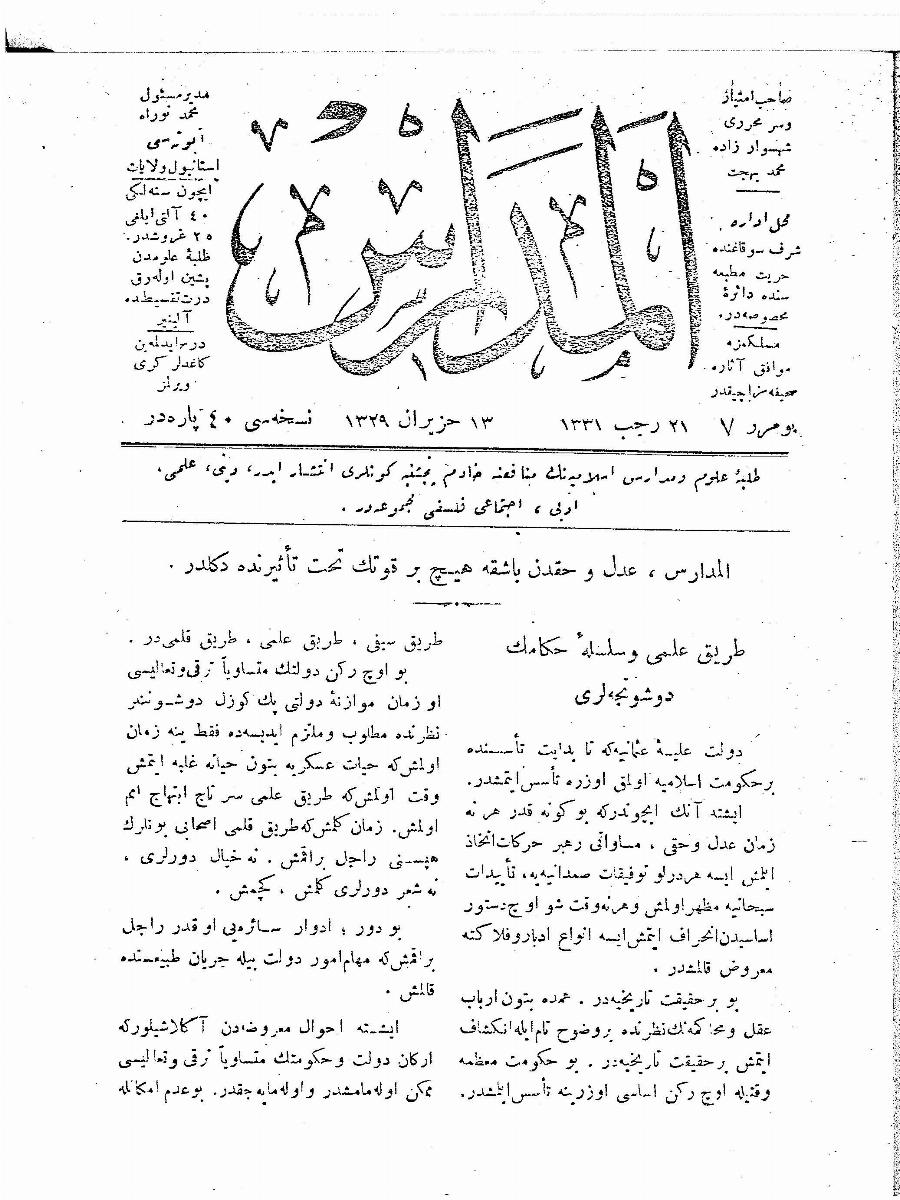 صاحب امتياز
وسر محررى
شهسوار زاده
محمد بهجت
محل اداره
شرف سوقاغنده
حريت مطبعه
سنده دائرهٔ
مخصوصه‌در.
مسلكمزه
موافق آثاره
صحيفه‌مز آچيقدر
المدارس
مدير مسئول
محمد توراه
آبونه‌سى
استانبول ولايات
ايچون سنه‌لكى
٤٠ آلتى ايلغى
٢٥ غروشدر.
طلبهٔ علومدن
پشين اوله‌رق
درت تقسيطده
آلينير
درج ايدلمه‌ين
كاغدلر كرى
ويرلمز
نومرو ٧
٢١ رجب ١٣٣١
١٣ حزيران ١٣٢٩
نسخه‌سى ٤٠ پاره‌در
طلبهٔ علوم ومدارس اسلاميه‌نك منافعنه خادم پنجشنبه كونلرى انتشار ايدر، دينى، علمى،
ادبى ، اجتماعى فلسفى مجموعه‌در .
المدارس ، عدل و حقدن باشقه هيچ بر قوتك تحت تأثيرنده دكلدر .
طريق علمى وسلسلهٔ حكامك
دوشونجه‌لرى
دولت عليهٔ عثمانيه‌كه تا بدايت تأسسنده
بر حكومت اسلاميه اولمق اوزره تأسس ايتمشدر.
ايشته آنك ايچوندركه بو كونه قدر هر نه
زمان عدل وحقى ، مساواتى رهبر حركات اتخاذ
ايلمش ايسه هردرلو توفيقات صمدانيه‌يه، تأييدات
سبحانيه مظهر اولمش وهر نه‌وقت شو اوچ دستور
اساسيدن انحراف ايتمش ايسه انواع ادبار وفلاكته
معروض قالمشدر .
بو بر حقيقت تاريخيه‌در . عمده بتون ارباب
عقل ومحاكمه‌نك نظرنده بر وضوح تام ايله انكشاف
ايتمش بر حقيقت تاريخيه‌در . بو حكومت معظمه
وقتيله اوچ ركن اساسى اوزرينه تأسس ايلمشدر.
طريق سيفى ، طريق علمى ، طريق قلمى‌در .
بو اوچ ركن دولتك متساوياً ترقى وتعاليسى
او زمان موازنهٔ دولتى پك كوزل دوشونتلر
نظرنده مطلوب وملتزم ايديسه‌ده فقط ينه زمان
اولمش‌كه حيات عسكريه بتون حياته غلبه ايتمش
وقت اولمش‌كه طريق علمى سر تاج ابتهاج ايم
اولمش. زمان كلمش‌كه طريق قلمى اصحابى بونلرك
هپسنى راجل براقمش . نه خيال دورلرى ،
نه شعر دورلرى كلمش ، كچمش .
بو دور ؛ ادوار سائره‌يى او قدر راجل
براقمش‌كه مهام امور دولت بيله جريان طبيعسنده
قالمش .
ايشته احوال معروضه‌دن آكلاشيلوركه
اركان دولت وحكومتك متساوياً ترقى وتعاليسى
ممكن اوله‌مامشدر واوله‌مايه‌جقدر. بو عدم امكانله